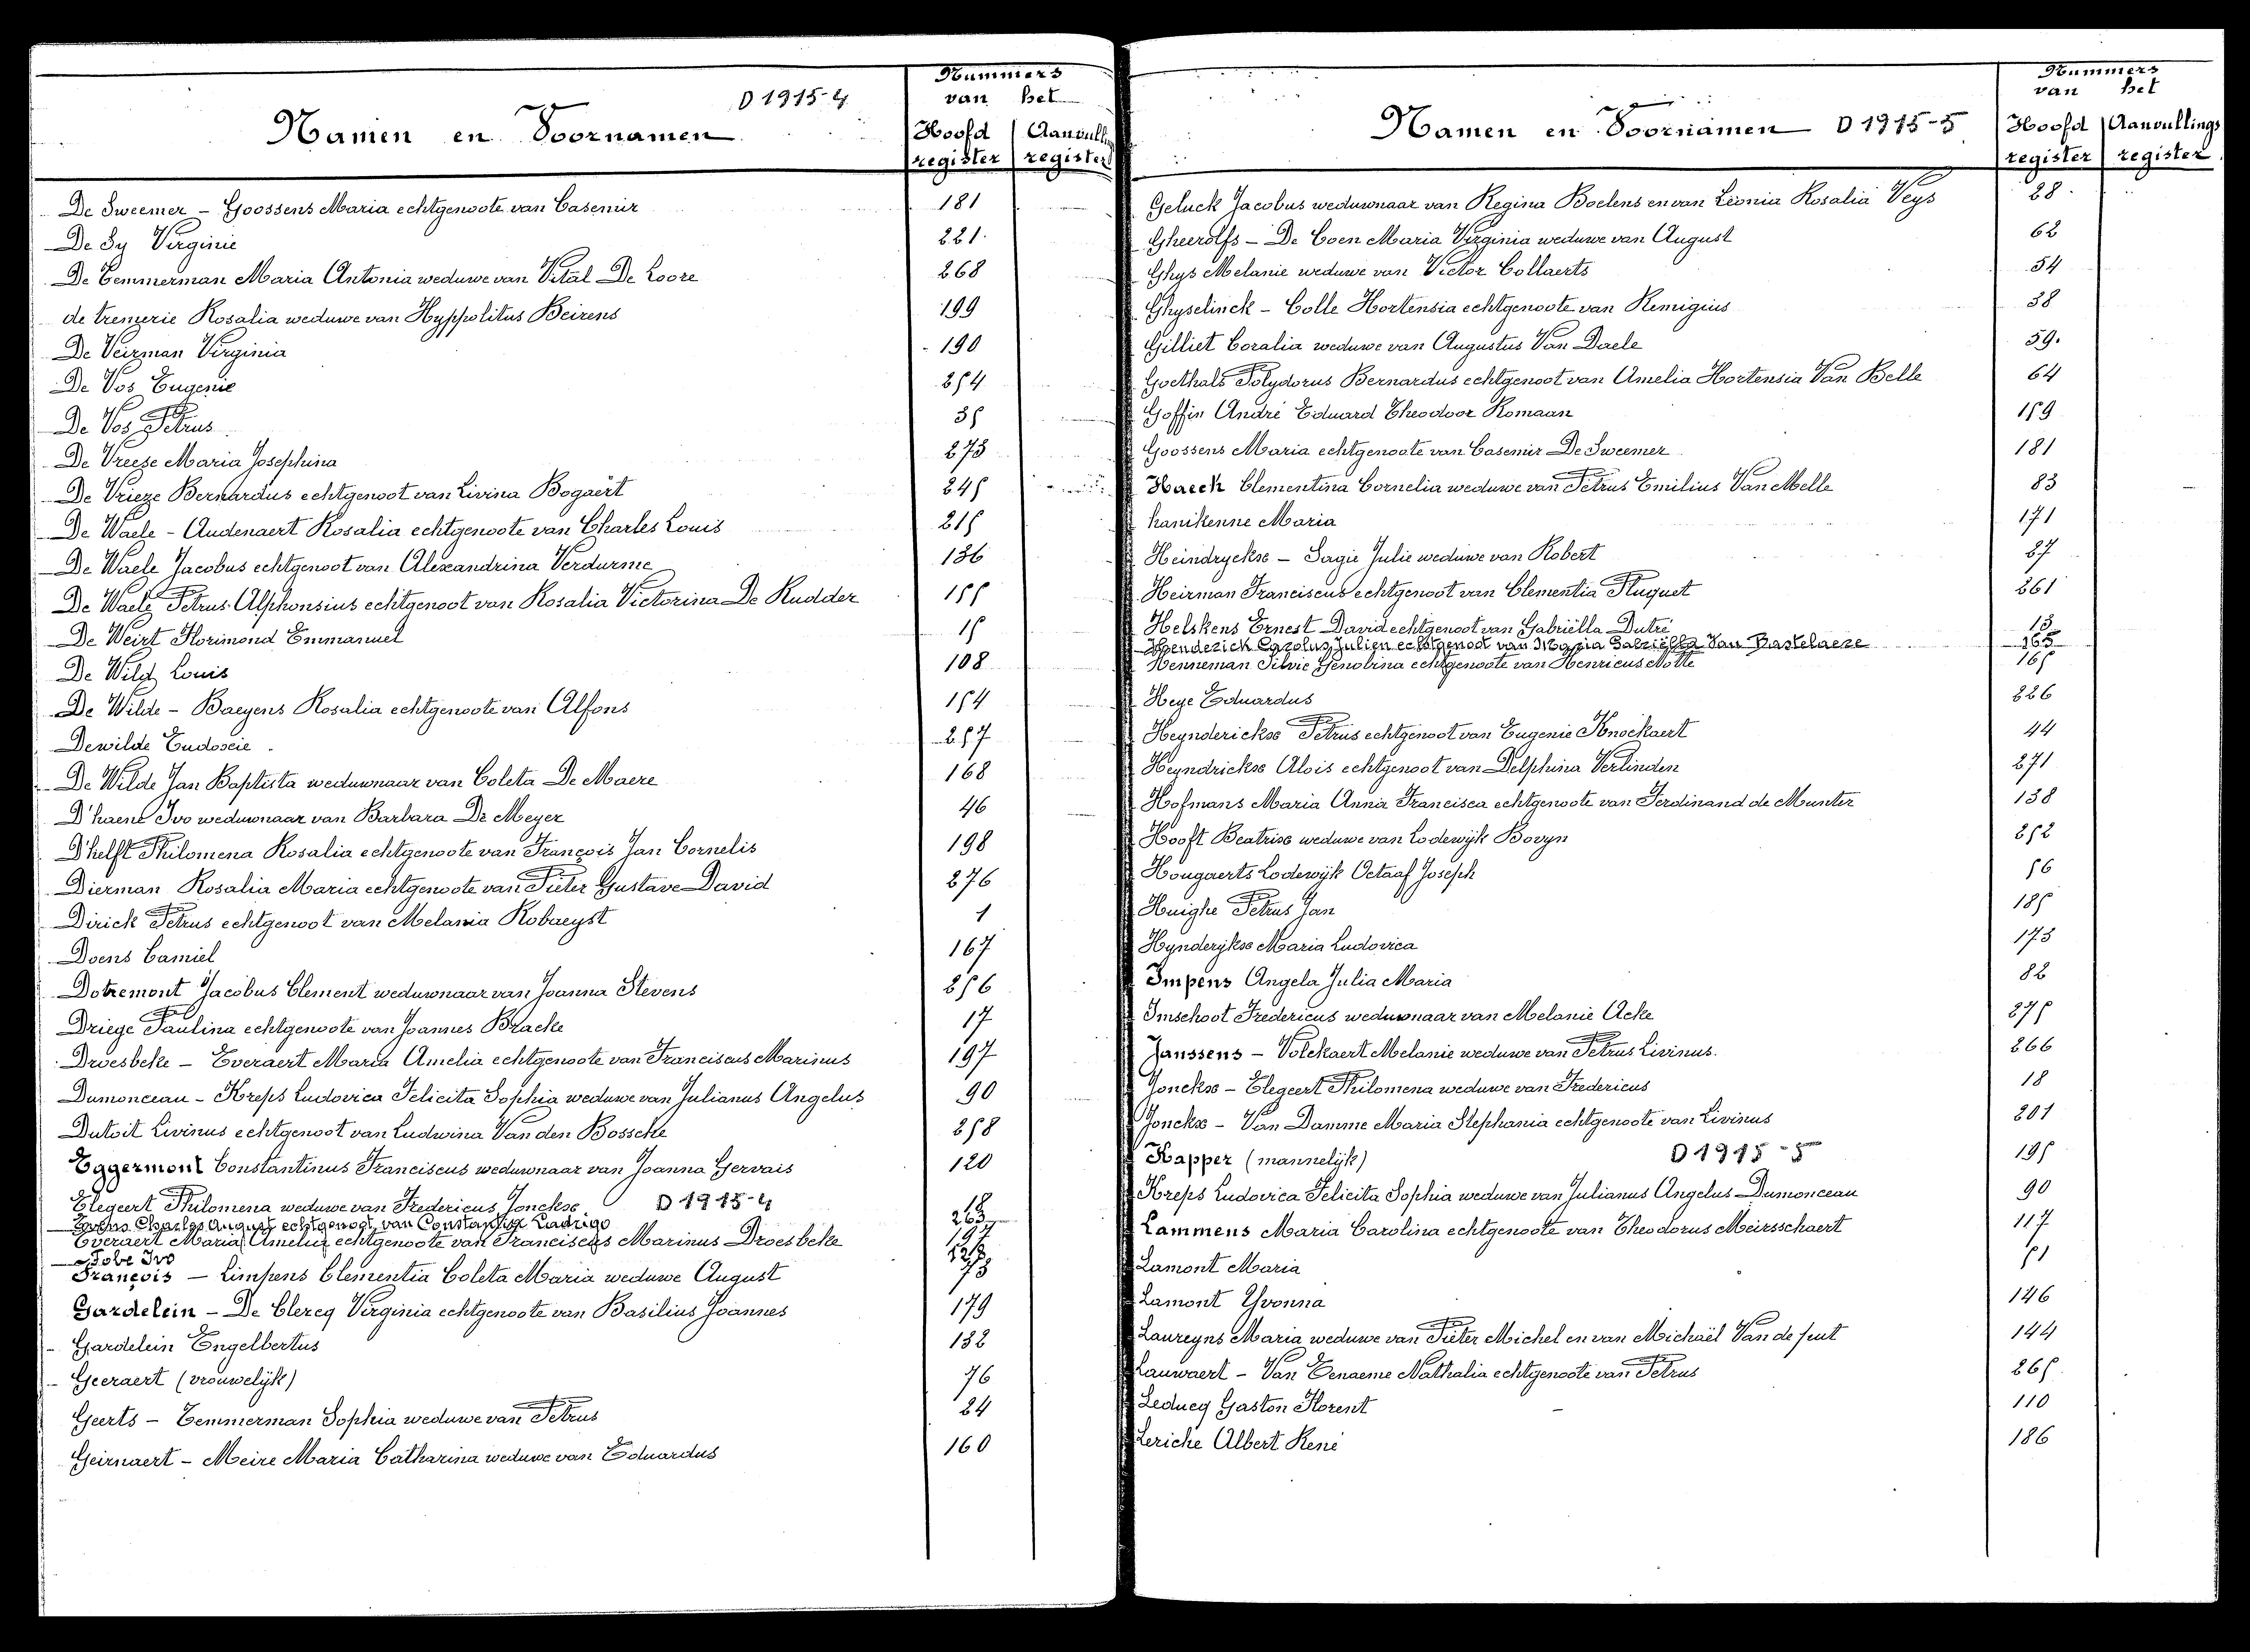 Namen en Voornamen D 1915-4
Nummers
van het
Hoofd Aanvull
register register
De Sweemer - Goossens Maria echtgenoote van Casemir 181
De Sy Virginie 221
De Temmerman Maria Antonia weduwe van Vital De Loore 268
de tremerie Rosalia weduwe van Hyppolitus Beirens 199
De Veirman Virginia 190
De Vos Eugenie 254
De Vos Petrus 35
De Vreeze Maria Josephina 273
De Vrieze Bernardus echtgenoot van Livina Bogaert 245
De Waele - Audenaert Rosalia echtgenoote van Charles Louis 215
De Waele Jacobus echtgenoot van Alexandrina Verdurme 136
De Waele Petrus Alphonsius echtgenoot van Rosalia Victorina De Rudder 155
De Weirt Florimond Emmanuel 15
De Wild Louis 108
De Wilde - Baeyens Rosalia echtgenoote van Alfons 154
Dewilde Eudoxie 257
De Wilde Jan Baptista weduwnaar van Coleta De Maere 168
D'haene Ivo weduwnaar van Barbara De Meyer 46
D'helft Philomena Rosalia echtgenoote van François Jan Cornelis 198
Dierman Rosalia Maria echtgenoote van Pieter Gustave David 276
Dirick Petrus echtgenoot van Melania Robaeyst 1
Doens Camiel 167
Dotremont Jacobus Clement weduwnaar van Joanna Stevens 256
Driege Paulina echtgenoote van Joannes Bracke 17
Droesbeke - Everaert Maria Amelia echtgenoote van Franciscus Marinus 197
Dumonceau - Kreps Ludovica Felicita Sophia weduwe van Julianus Angelus 90
Dutoit Livinus echtgenoot van Ludwina Van den Bossche 258
Eggermont Constantinus Franciscus weduwnaar van Joanna Gervais 120
Elegeert Philomena weduwe van Fredericus Jonckse D 1915-4
Charles August echtgenoot van Ladrigo 263
Everaert Maria Amelia echtgenoote van Franciscus Marinus Droesbeke 197
Tobe Ivo
François - Limpens Clementia Coleta Maria weduwe August 73
Gardelein - De Clercq Virginia echtgenoote van Basilius Joannes 179
Gardelein Engelbertus 132
Geeraert (vrouwelijk) 76
Geerts - Temmerman Sophia weduwe van Petrus 24
Geirnaert - Meire Maria Catharina weduwe van Eduardus 160
Namen en Voornamen D 1915-5
Nummers
van het
Hoofd Aanvullings
register register
Geluck Jacobus weduwnaar van Regina Boelens en van Leonia Rosalia Veys 28
Gheerolfs - De Coen Maria Virginia weduwe van August 62
Ghys Melanie weduwe van Victor Collaerts 54
Ghyselinck - Colle Hortensia echtgenoote van Remigius 38
Gilliet Coralia weduwe van Augustus Van Daele 59
Goethals Polydorus Bernardus echtgenoot van Amelia Hortensia Van Belle 64
Goffin André Eduard Theodoor Romaan 159
Goossens Maria echtgenoote van Casemir De Sweemer 181
Haeck Clementina Cornelia weduwe van Petrus Emilius Van Melle 83
hanikenne Maria 171
Heindryckse - Sagie Julie weduwe van Robert 87
Heirman Franciscus echtgenoot van Clementia Pluquet 261
Helskens Ernest David echtgenoot van Gabriëlla Dutré 13
Henderick Carolus Julien echtgenoot van Maria Gabriëlla Van Bastelaere 165
Henneman Silvie Zenobina echtgenoote van Henricus Notte 165
Heye Eduardus 226
Heynderickse Petrus echtgenoot van Eugenie Knockaert 44
Heyndrickse Alois echtgenoot van Delphina Verlinden 271
Hofmans Maria Anna Francisca echtgenoote van Ferdinand de Munter 138
Hooft Beatrise weduwe van Lodewijk Bovyn 252
Hougaerts Lodewijk Octaaf Joseph 56
Huighe Petrus Jan 185
Hynderykse Maria Ludovica 173
Impens Angela Julia Maria 82
Imschoot Fredericus weduwnaar van Melanie Acke 275
Janssens - Volckaert Melanie weduwe van Petrus Livinus. 266
Jonckse - Elegeert Philomena weduwe van Fredericus 18
Jonckse - Van Damme Maria Stephania echtgenoote van Livinus 201
Kapper (mannelijk) D 1915-5 195
Kreps Ludovica Felicita Sophia weduwe van Julianus Angelus Dumonceau 90
Lammens Maria Carolina echtgenoote van Theodorus Meirsschaert 117
Lamont Maria 51
Lamont Yvonna 146
Laureyns Maria weduwe van Pieter Michel en van Michaël Van de putt 144
Lauwaert - Van Eenaeme Nathalia echtgenoote van Petrus 265
Leducq Gaston Florent 110
Leriche Albert René 186